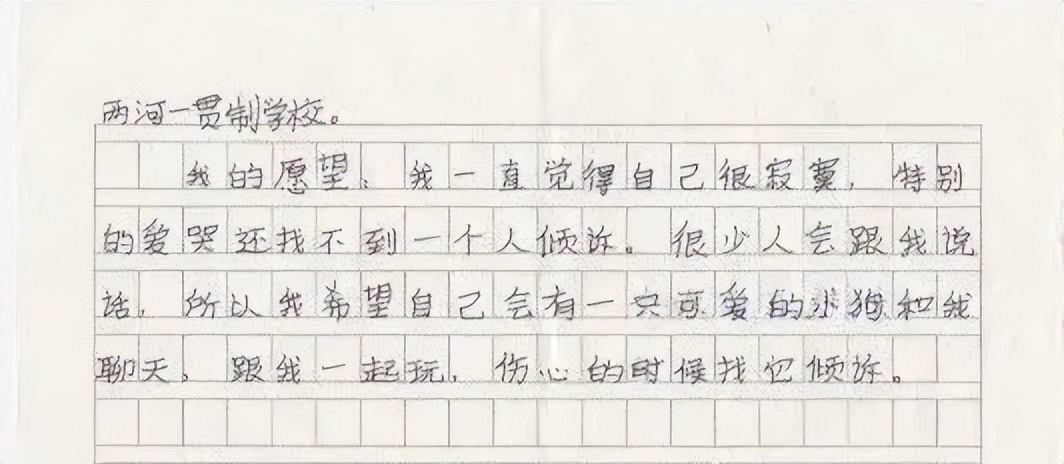 两河一贯制学校。
我的愿望：我一直觉得自己很寂寞，特别
的爱哭还找不到一个人倾诉。很少人会跟我说
话，所以我希望自己会有一只可爱的小狗和我
聊天。跟我一起玩，伤心的时候找它倾诉。